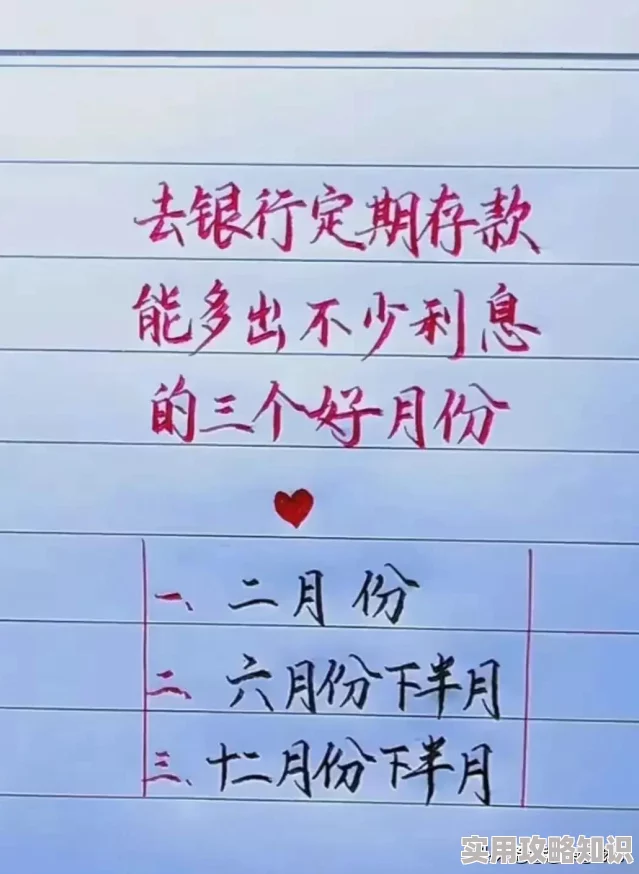 去银行定期存款
能多出不少利息
的三个好月份
一、二月份
二、六月份下半月
三、十二月份下半月
实用攻略知识